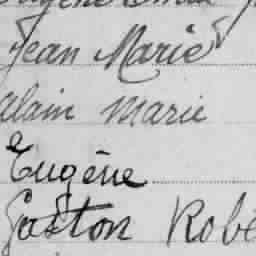 Jean Marie
Alain Marie
Eugène
Gaston Robe